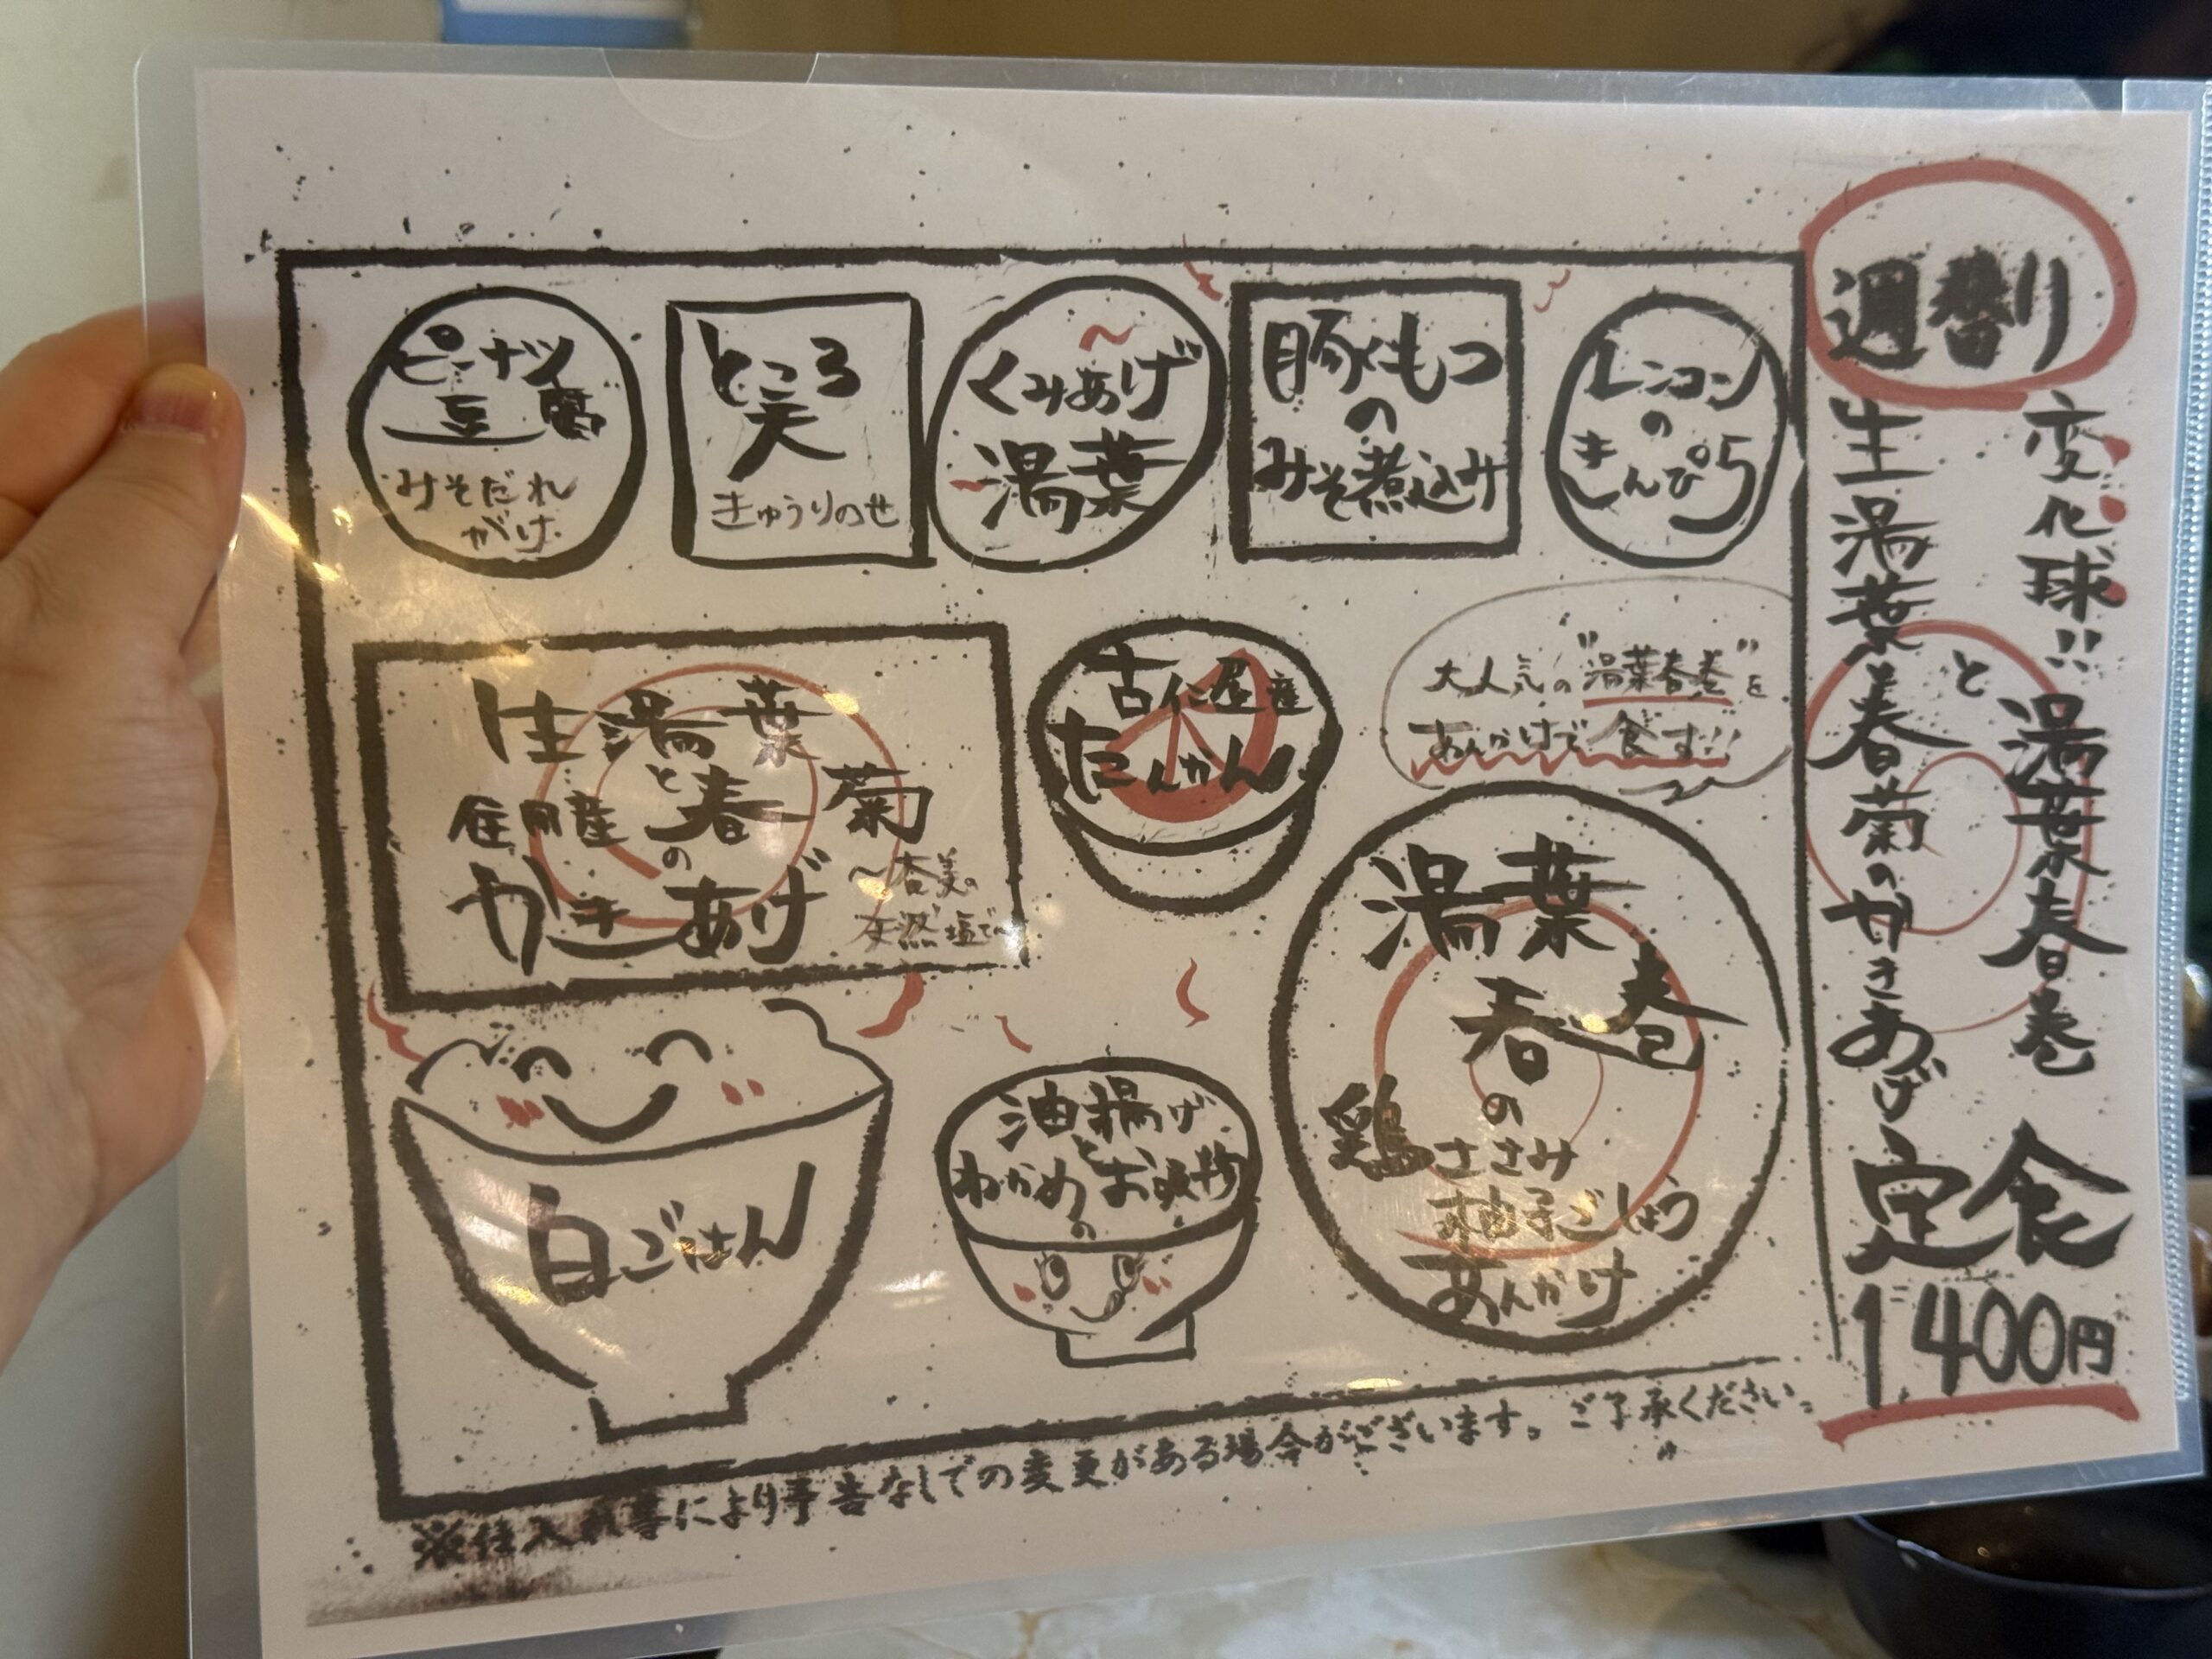 週替り
変化球!!湯葉春巻
と
生湯葉と春菊のかきあげ
定食
1400円
ピーナツ
豆腐
みそだれ
がけ
ところ
天
きゅうりのせ
くみあげ
湯葉
豚もつ
の
みそ煮込み
レンコン
の
きんぴら
生湯葉
と
住用産 春菊
の
かきあげ
古仁屋産
たんかん
大人気の"湯葉春巻"を
あんかけで食す!!
湯葉
春巻
の
鶏ささみ
柚子ごしょう
あんかけ
白ごはん
油揚げ
と
わかめ
の
お吸物
※仕入れ等により予告なしでの変更がある場合がございます。ご了承ください。